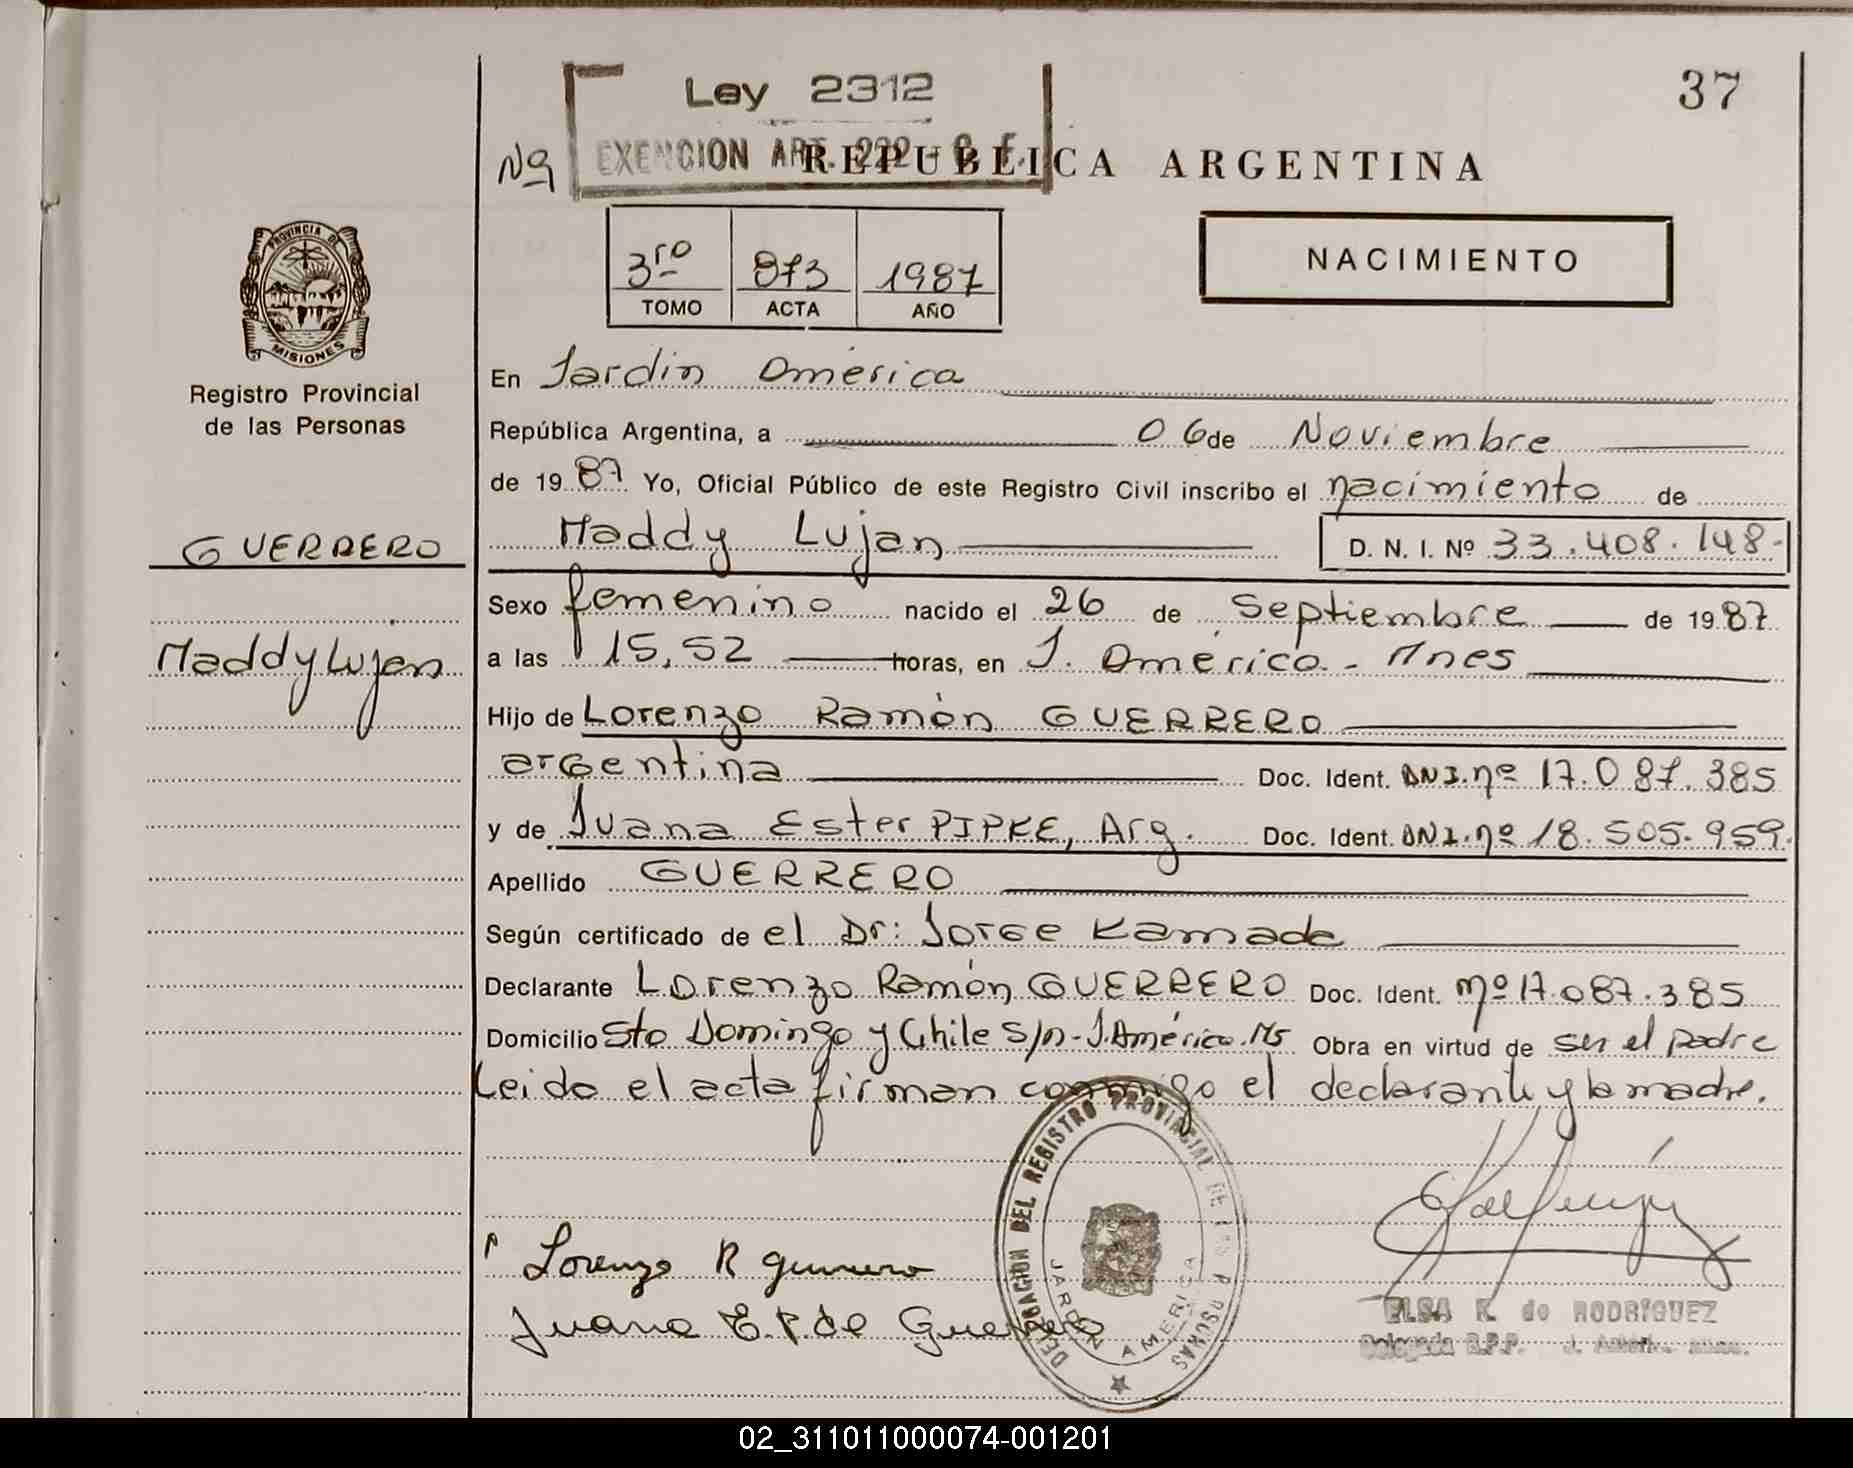 37
Ley 2312
EXENCION ART. 222 - C. F.
Nº
REPUBLICA ARGENTINA
3ro 873 1987
TOMO ACTA AÑO
NACIMIENTO
PROVINCIA DE
MISIONES
Registro Provincial
de las Personas
GUERRERO
Maddy Lujan
En Jardin América
República Argentina, a 06 de Noviembre
de 1987 Yo, Oficial Público de este Registro Civil inscribo el nacimiento de
Maddy Lujan D. N. I. Nº 33.408.148-
Sexo femenino nacido el 26 de Septiembre de 1987
a las 15,52 horas, en J. América - Mnes
Hijo de Lorenzo Ramón GUERRERO
argentina Doc. Ident. DNI. nº 17.087.385
y de Juana Ester PIPKE, Arg. Doc. Ident. DNI. nº 18.505.959.
Apellido GUERRERO
Según certificado de el Dr: Jorge Kamada
Declarante Lorenzo Ramón GUERRERO Doc. Ident. nº 17.087.385
Domicilio Sto Domingo y Chile S/n - J. América. Ms Obra en virtud de ser el padre
Leido el acta firman conmigo el declarante y la madre.
Lorenzo R guerrero
Juana E. P. de Guerrero
DELEGACION DEL REGISTRO PROVINCIAL DE LAS PERSONAS
JARDIN AMERICA
ELSA K. de RODRÍGUEZ
Delegada R.P.P.
02_311011000074-001201